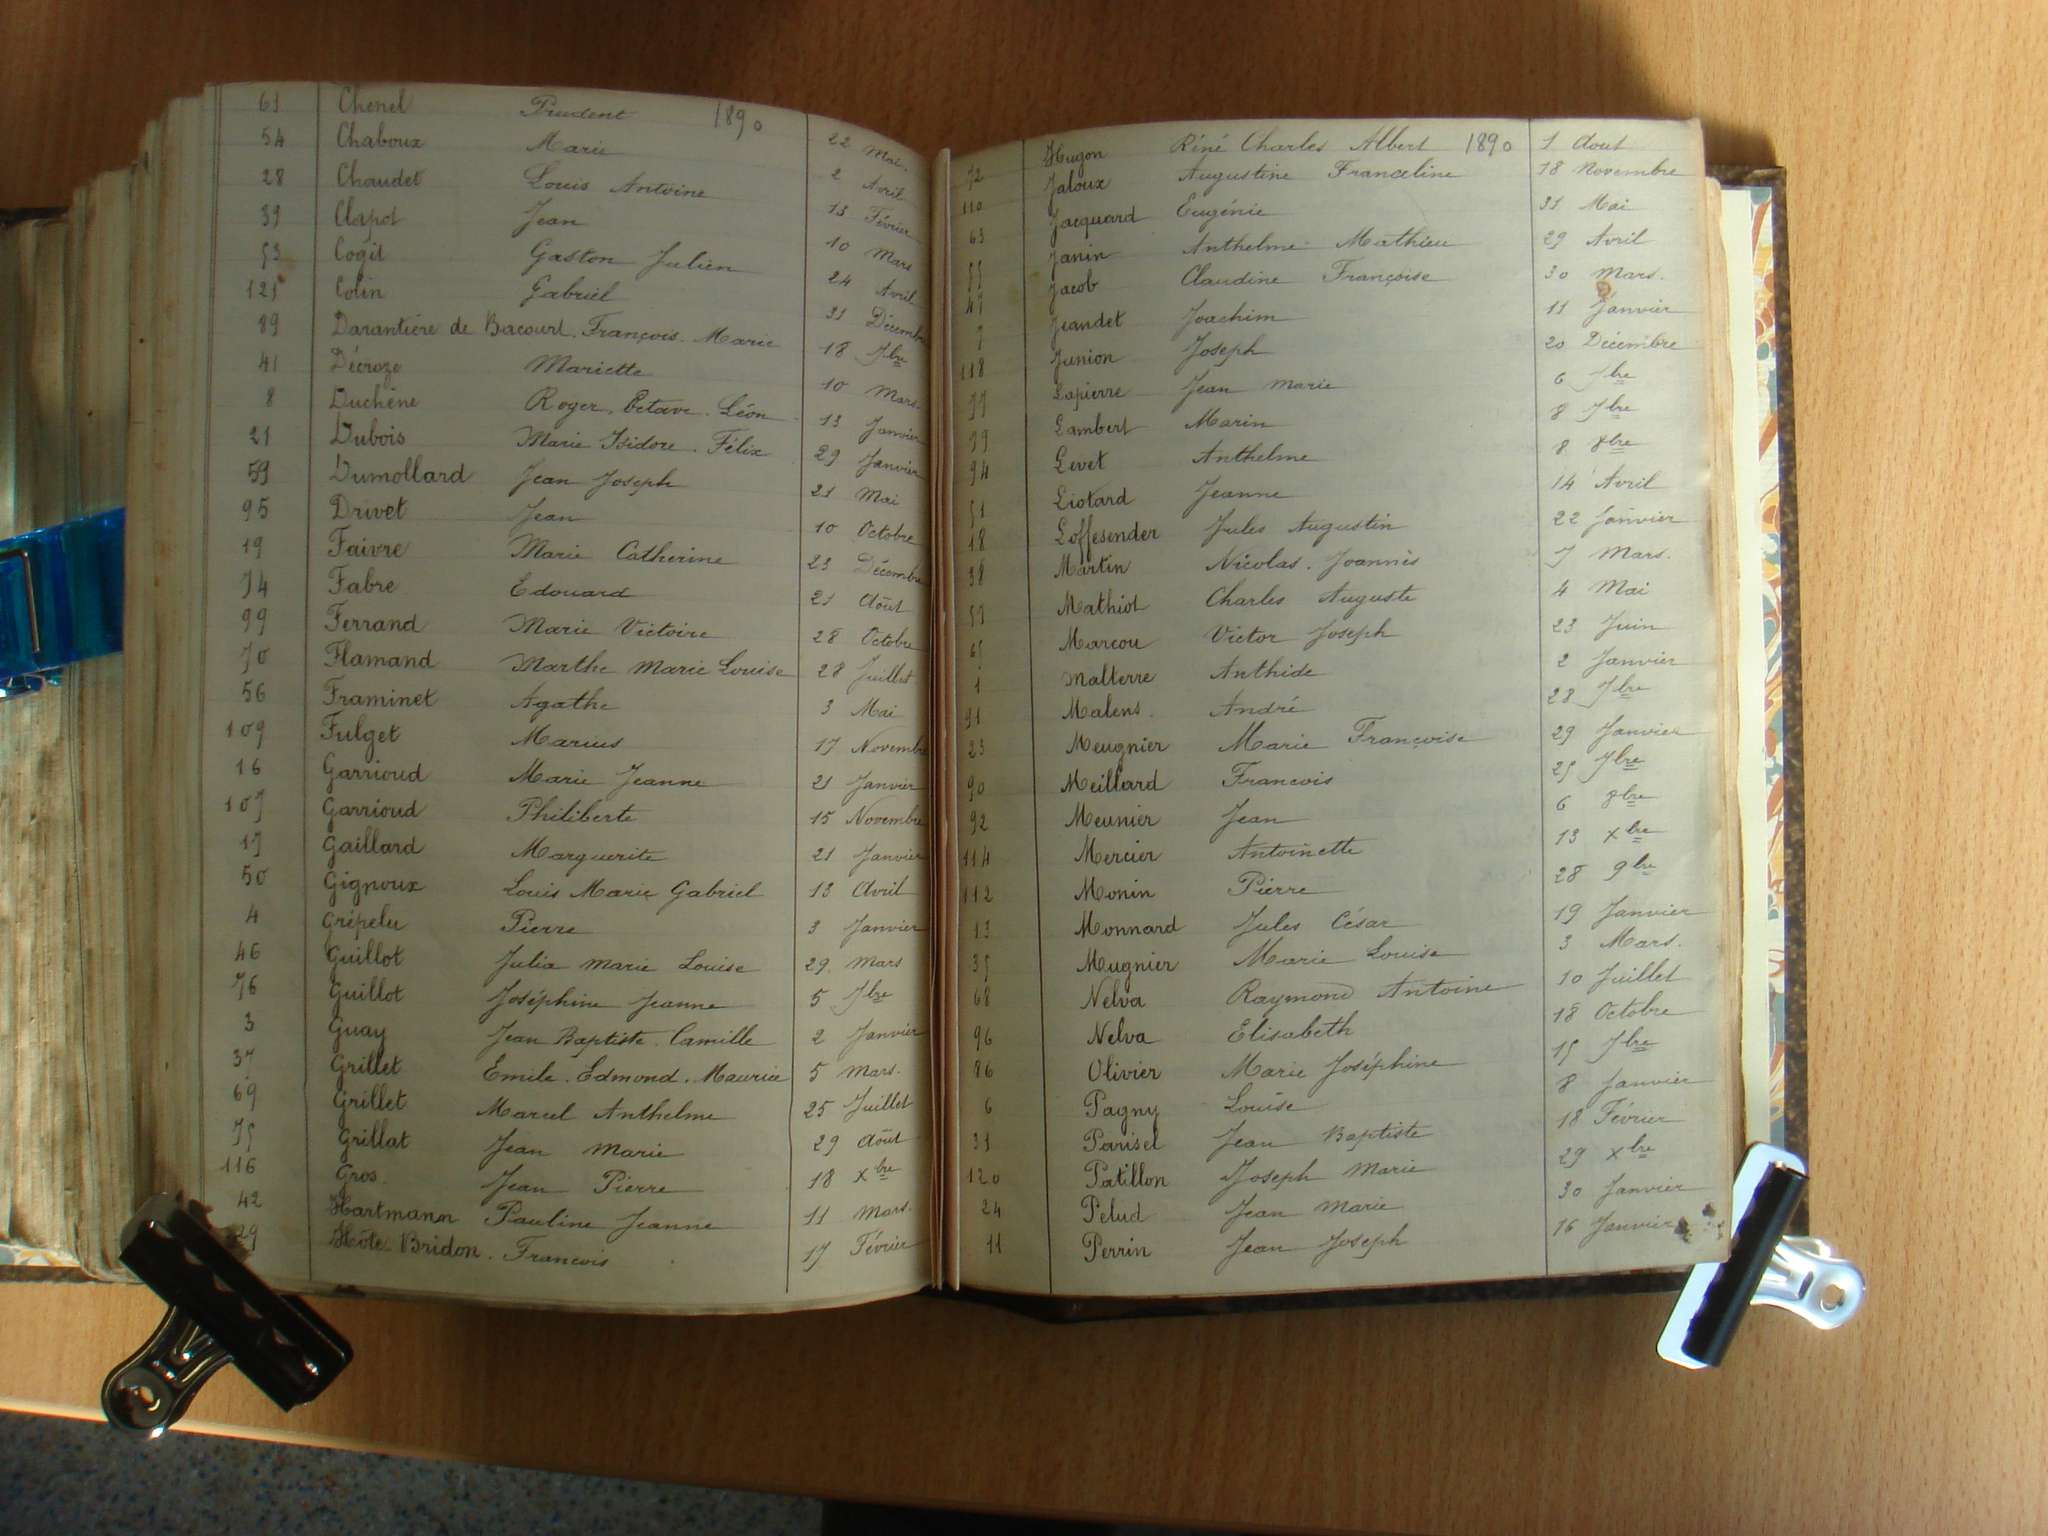 61 Chenel Prudent 1890 22 Mai.
54 Chaboux Marie 2 Avril
28 Chaudet Louis Antoine 13 Février
39 Clapot Jean 10 Mars
53 Cogit Gaston Julien 24 Avril
121 Colin Gabriel 31 Décembre
89 Darantière de Bacourt. François. Marie 18 7bre
41 Décroze Mariette 10 Mars.
8 Duchêne Roger. Octave. Léon 13 Janvier
21 Dubois Marie Isidore. Félix 29 Janvier
59 Dumollard Jean Joseph 21 Mai
95 Drivet Jean 10 Octobre
19 Faivre Marie Catherine 23 Décembre
74 Fabre Edouard 21 Août
99 Ferrand Marie Victoire 28 Octobre
70 Flamand Marthe Marie Louise 28 Juillet
56 Framinet Agathe 3 Mai
109 Fulget Marius 17 Novembre
16 Garrioud Marie Jeanne 21 Janvier
107 Garrioud Philiberte 15 Novembre
17 Gaillard Marguerite 21 Janvier
50 Gignoux Louis Marie Gabriel 13 Avril
4 Grépelu Pierre 3 Janvier
46 Guillot Julia Marie Louise 29 Mars
76 Guillot Joséphine Jeanne 5 7bre
3 Guay Jean Baptiste. Camille 2 Janvier
37 Grillet Emile. Edmond. Maurice 5 Mars.
69 Grillet Marcel Anthelme 25 Juillet
75 Grillat Jean Marie 29 Août
116 Gros. Jean Pierre 18 Xbre
42 Hartmann Pauline Jeanne 11 Mars.
29 Hôte-Bridon. Francois 17 Février
72 Hugon Réné Charles Albert 1890 1 Aout
110 Jaloux Augustine Franceline 18 Novembre
63 Jacquard Eugénie 31 Mai
55 Janin Anthelme Mathieu 29 Avril
47 Jacob Claudine Françoise 30 Mars.
7 Jeandet Joachim 11 Janvier
118 Junion Joseph 20 Décembre
77 Lapierre Jean Marie 6 7bre
79 Lambert Marin 8 7bre
94 Levet Anthelme 8 8bre
51 Liotard Jeanne 14 Avril
18 Loffesender Jules Augustin 22 Janvier
38 Martin Nicolas. Joannès 7 Mars.
57 Mathiot Charles Auguste 4 Mai
65 Marcou Victor Joseph 23 Juin
1 Malterre Anthide 2 Janvier
91 Malens. André 28 7bre
23 Meugnier Marie Françoise 29 Janvier
90 Meillard Francois 25 7bre
92 Meunier Jean 6 8bre
114 Mercier Antoinette 13 Xbre
112 Monin Pierre 28 9bre
13 Monnard Jules César 19 Janvier
35 Mugnier Marie Louise 3 Mars.
68 Nelva Raymond Antoine 10 Juillet
96 Nelva Elisabeth 18 Octobre
86 Olivier Marie Joséphine 15 7bre
6 Pagny Louise 8 Janvier
31 Parisel Jean Baptiste 18 Février
120 Patillon Joseph Marie 29 Xbre
24 Pelud Jean Marie 30 Janvier
11 Perrin Jean Joseph 16 Janvier